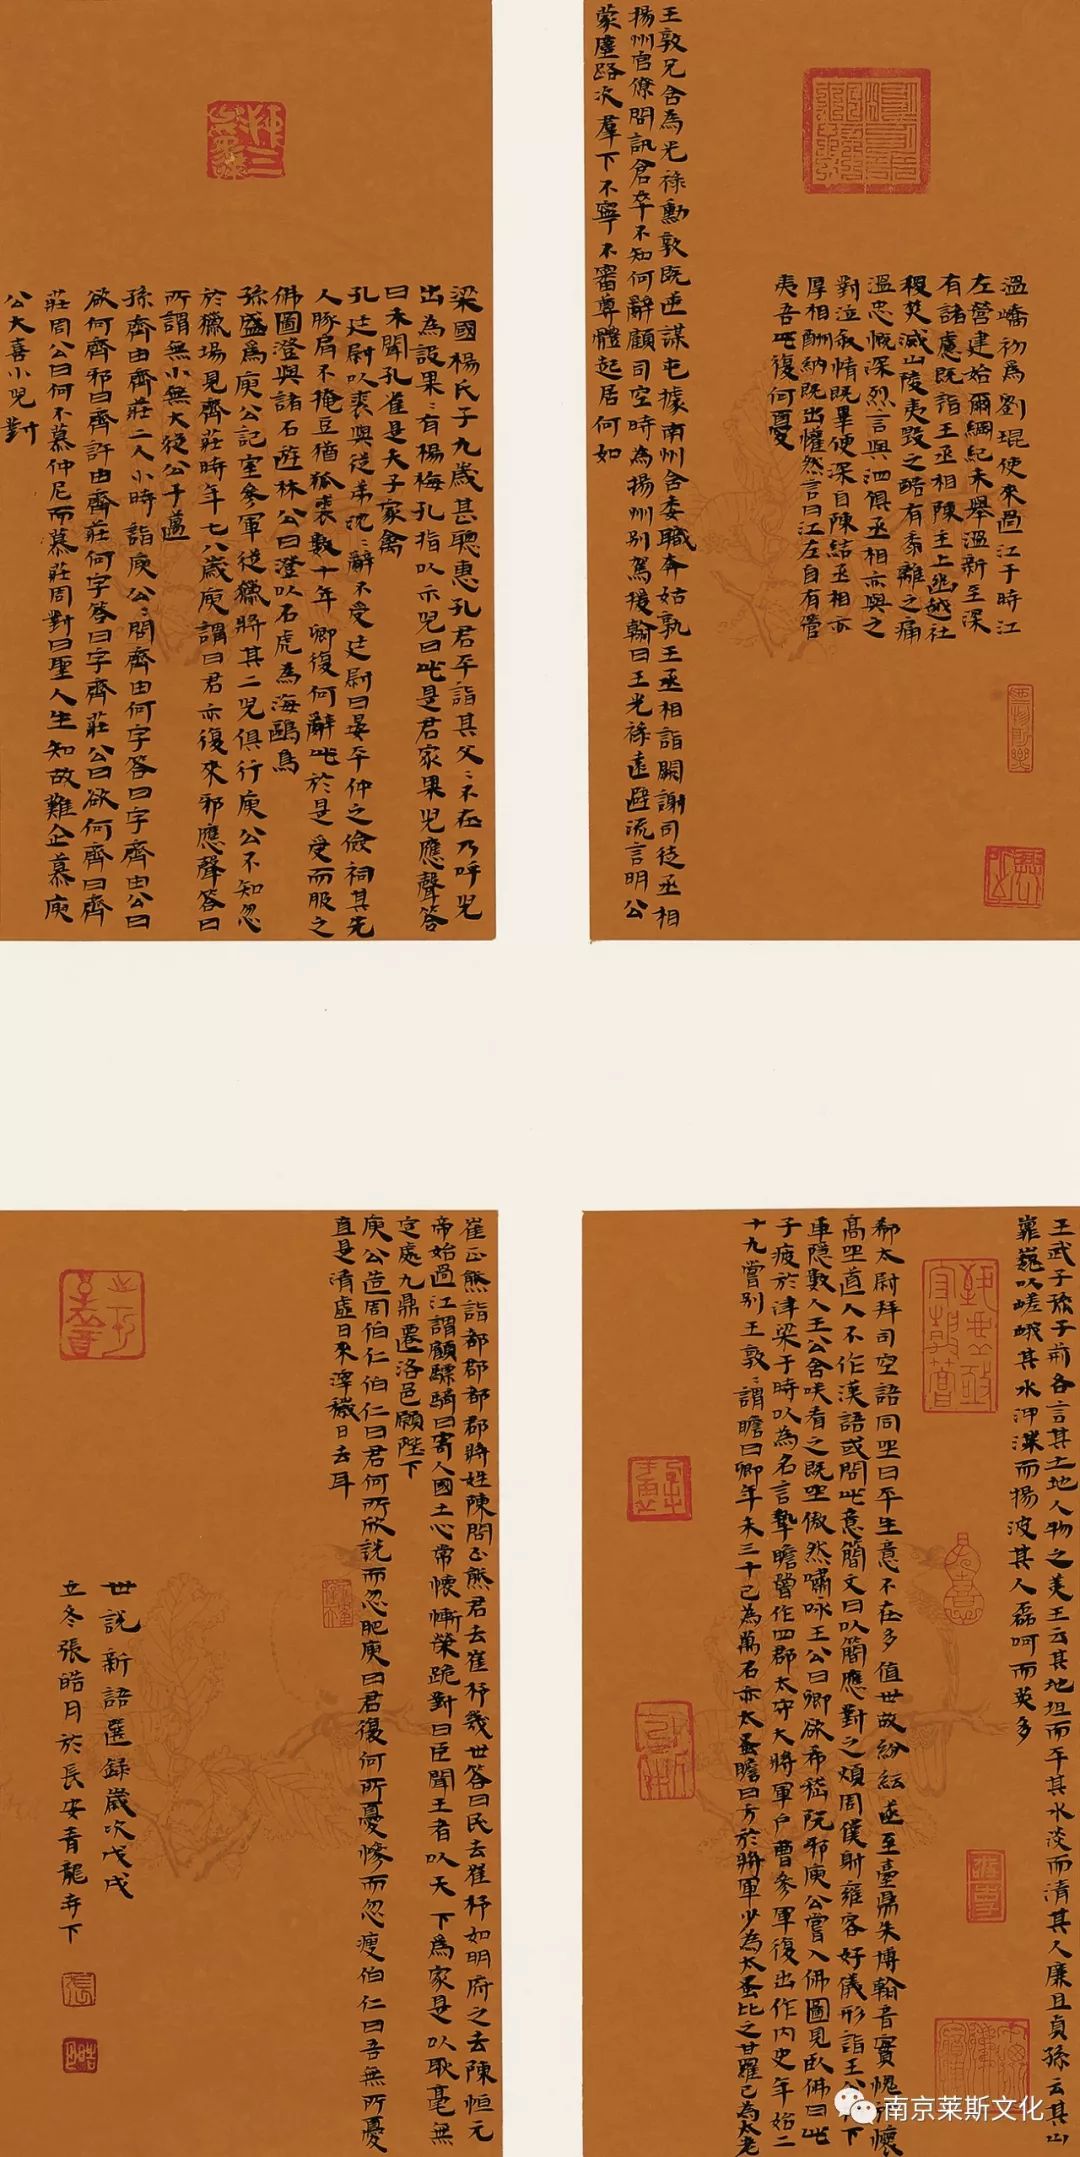 溫嶠初爲劉琨使來過江于時江
左營建始爾綱紀未舉溫新至深
有諸慮既詣王丞相陳主上幽越社
稷焚滅山陵夷毀之酷有黍離之痛
溫忠慨深烈言與泗俱丞相亦與之
對泣叙情既畢便深自陳結丞相亦
厚相酬納既出懽然言曰江左自有管
夷吾此復何憂
王敦兄含為光祿勳敦既逆謀屯據南州含委職奔姑孰王丞相詣闕謝司徒丞相
揚州官僚問訊倉卒不知何辭顧司空時為揚州別駕援翰曰王光祿遠避流言明公
蒙塵路次羣下不寧不審尊體起居何如
梁國楊氏子九歲甚聰惠孔君平詣其父〻不在乃呼兒
出為設果〻有楊梅孔指以示兒曰此是君家果兒應聲答
曰未聞孔雀是夫子家禽
孔廷尉以裘與從弟沈〻辭不受廷尉曰晏平仲之儉祠其先
人豚肩不掩豆猶狐裘數十年卿復何辭此於是受而服之
佛圖澄與諸石遊林公曰澄以石虎為海鷗鳥
孫盛爲庾公記室參軍從獵將其二兒俱行庾公不知忽
於獵場見齊莊時年七八歲庾謂曰君亦復來邪應聲答曰
所謂無小無大從公于邁
孫齊由齊莊二人小時詣庾公〻問齊由何字答曰字齊由公曰
欲何齊邪曰齊許由齊莊何字答曰字齊莊公曰欲何齊曰齊
莊周公曰何不慕仲尼而慕莊周對曰聖人生知故難企慕庾
公大喜小兒對
王武子孫子荊各言其土地人物之美王云其地坦而平其水淡而清其人廉且貞孫云其山
嶵巍以嵯峨其水㳌渫而揚波其人磊砢而英多
郗太尉拜司空語同坐曰平生意不在多值世故紛紜遂至臺鼎朱博翰音實愧於懷
高坐道人不作漢語或問此意簡文曰以簡應對之煩周僕射雍容好儀形詣王公初下
車隱數人王公含咲看之既坐傲然嘯咏王公曰卿欲希嵇阮邪庾公嘗入佛圖見臥佛曰此
子疲於津梁于時以為名言摯瞻曾作四郡太守大將軍戶曹參軍復出作內史年始二
十九嘗別王敦〻謂瞻曰卿年未三十已為萬石亦太蚤瞻曰方於將軍少為太蚤比之甘羅已為太老
崔正熊詣都郡都郡將姓陳問正熊君去崔杼幾世答曰民去崔杼如明府之去陳恒元
帝始過江謂顧驃騎曰寄人國土心常懷慚榮跪對曰臣聞王者以天下爲家是以耿亳無
定處九鼎遷洛邑願陛下
庾公造周伯仁伯仁曰君何所欣說而忽肥庾曰君復何所憂慘而忽瘦伯仁曰吾無所憂
直是清虛日來滓穢日去耳
世說新語選錄歲次戊戌
立冬張皓月於長安青龍寺下
南京莱斯文化